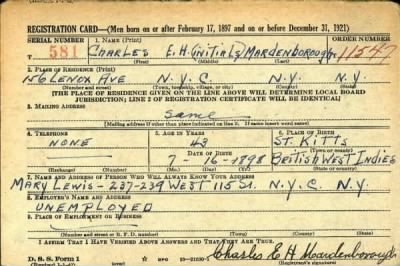 REGISTRATION CARD—(Men born on or after February 17, 1897 and on or before December 31, 1921)
SERIAL NUMBER
1. NAME (Print)
ORDER NUMBER
581
CHARLES E.H. (INITIALS) MARDENBOROUGH
11547
(First) (Middle) (Last)
2. PLACE OF RESIDENCE (Print)
156 LENOX AVE N.Y.C. N.Y. N.Y.
(Number and street) (Town, township, village, or city) (County) (State)
[THE PLACE OF RESIDENCE GIVEN ON THE LINE ABOVE WILL DETERMINE LOCAL BOARD
JURISDICTION; LINE 2 OF REGISTRATION CERTIFICATE WILL BE IDENTICAL]
3. MAILING ADDRESS
Same
[Mailing address if other than place indicated on line 2. If same insert word same]
4. TELEPHONE
5. AGE IN YEARS
6. PLACE OF BIRTH
NONE
43
ST. KITTS
DATE OF BIRTH
(Town or county)
7-16-1898
BRITISH WEST INDIES
(Exchange) (Number)
(Mo.) (Day) (Yr.)
(State or country)
7. NAME AND ADDRESS OF PERSON WHO WILL ALWAYS KNOW YOUR ADDRESS
MARY LEWIS - 237-239 WEST 115 St. N.Y.C. N.Y.
8. EMPLOYER'S NAME AND ADDRESS
UNEMPLOYED
9. PLACE OF EMPLOYMENT OR BUSINESS
(Number and street or R. F. D. number) (Town) (County) (State)
I AFFIRM THAT I HAVE VERIFIED ABOVE ANSWERS AND THAT THEY ARE TRUE.
D. S. S. Form 1
Charles E H Mardenborough